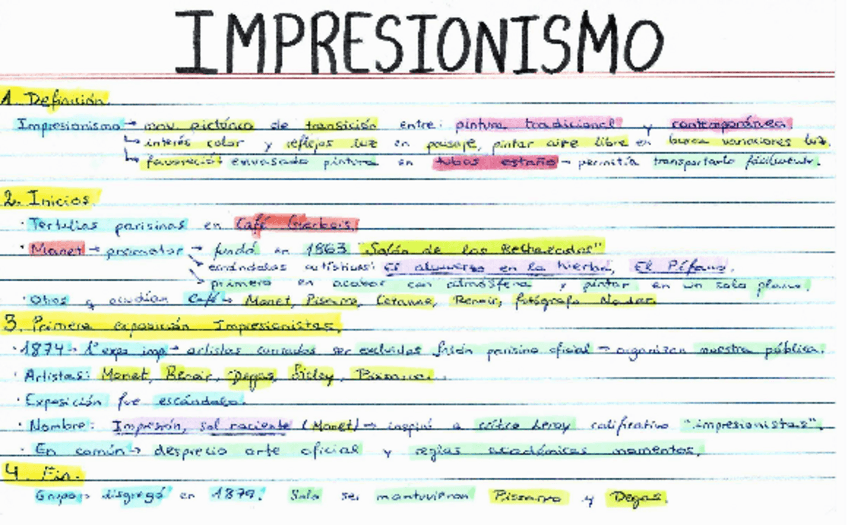 IMPRESIONISMO
1. Definición.
Impresionismo → mov. pictórico de transición entre: pintura tradicional y contemporánea.
↳ interés color y reflejos luz en paisaje, pintar aire libre en busca variaciones luz.
↳ favoreció envasado pintura en tubos estaño → permitía transportarlo fácilmente.
2. Inicios.
· Tertulias parisinas en Café
· Manet → promotor → fundó en 1863 "Salón de los Rechazados"
→ escándalos artísticos: El almuerzo en la hierba, El Pífano.
→ primero en acabar con atmósfera y pintar en un solo plano.
· Otros q acudían Café → Monet, Pissarro, Cezanne, Renoir, fotógrafo Nadar
3. Primera exposición Impresionistas.
· 1874 → 1ª expo imp → artistas cansados ser excluidos Salón parisino oficial → organizan muestra pública.
· Artistas: Monet, Renoir, Degas, Sisley, Pissarro.
· Exposición fue escándalo.
· Nombre: Impresión, sol naciente (Monet) → inspiró a crítico Leroy calificativo "impresionistas".
· En común → desprecio arte oficial y reglas académicas momentos.
4. Fin.
Grupo → disgregó en 1879. Solo se mantuvieron Pissarro y Degas.